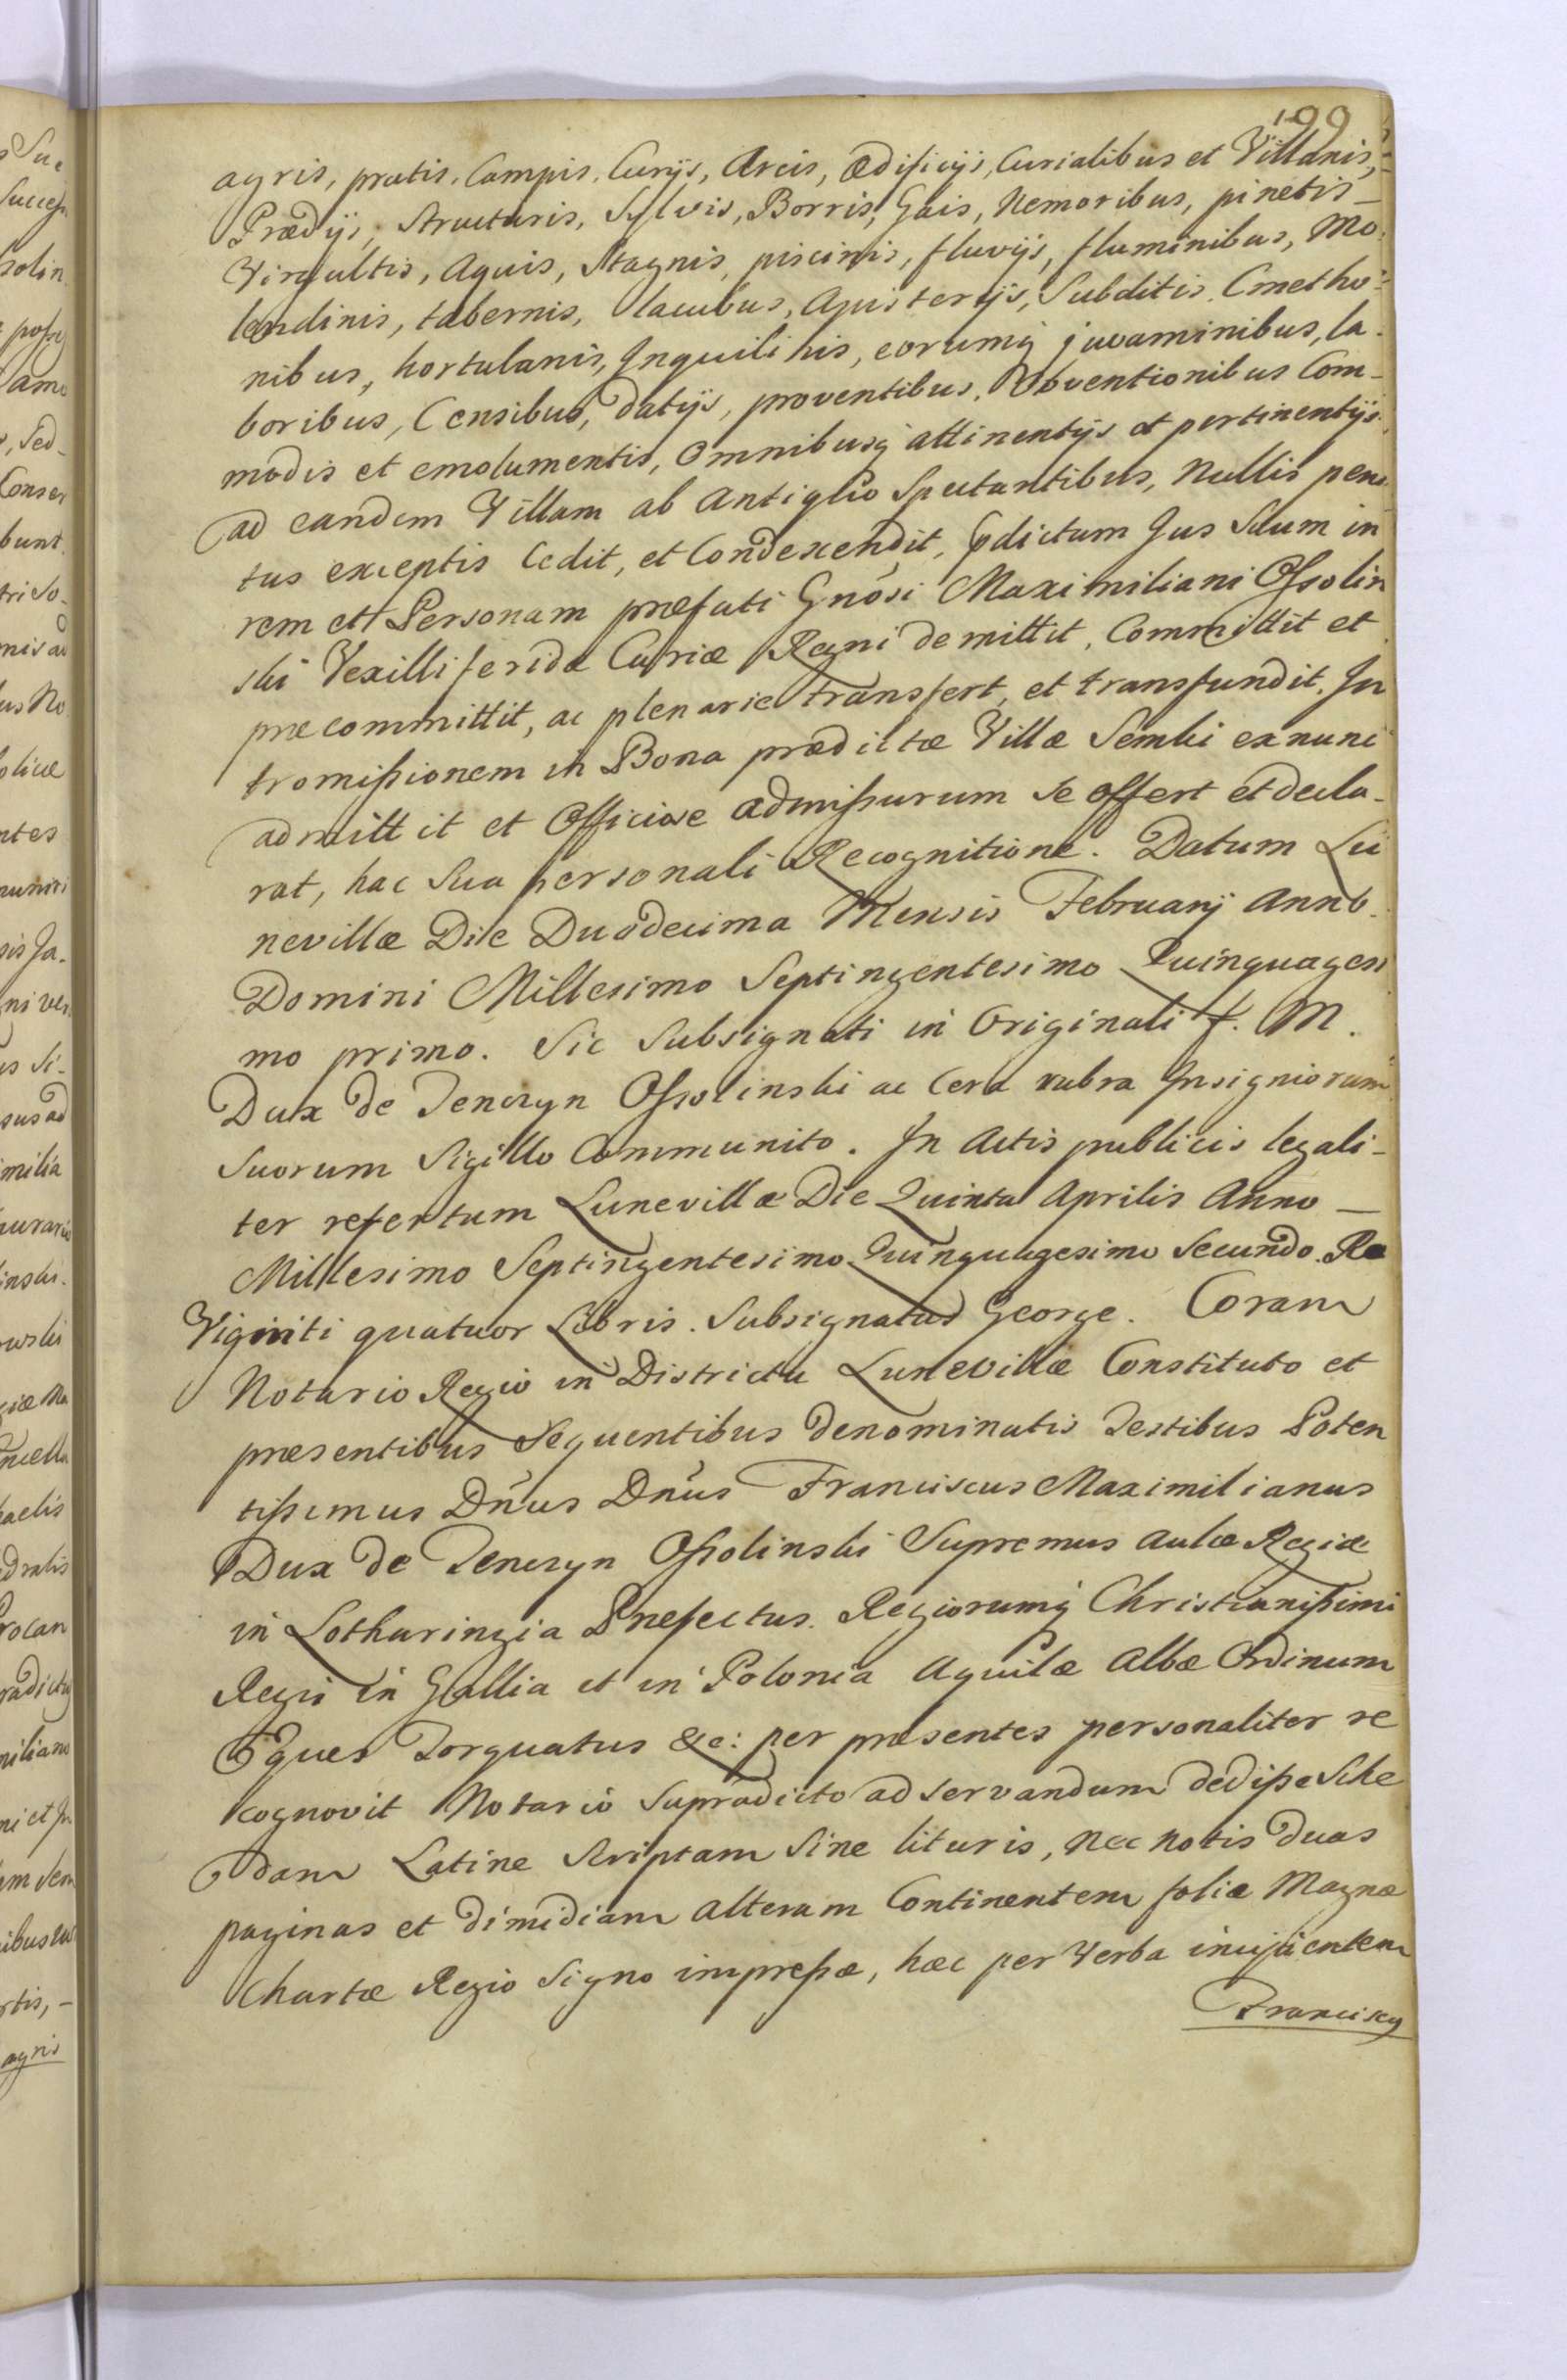 199
agris, pratis, Campis, Curijs, Areis, Ædificijs, Curialibus et Villanis,
Prædijs, Structuris, Sylvis, Borris, Gais, Nemoribus, pinetis
Virgultis, Aquis, Stagnis, piscinis, fluvijs, fluminibus, Mo-
lendinis, tabernis, lacubus, Apisterijs, Subditis, Cmetho-
nibus, hortulanis, Inquilinis, eorumq juvaminibus, la-
boribus, Censibus, datijs, proventibus, Obventionibus Com-
modis et emolumentis, Omnibusq attinentijs et pertinentijs
ad eandem Villam ab Antiquo Spectantibus, Nullis peni-
tus exceptis Cedit, et Condescendit, pdictum Jus Suum in
rem et Personam præfati Gnosi Maximiliani Ossolin
ski Vexilliferidæ Curiæ Regni demittit, Committit et
præcommittit, ac plenarie transfert, et transfundit. In
tromissionem in Bona prædictæ Villæ Semki exnunc
admittit et Officiose admissurum se offert et decla-
rat, hac Sua personali Recognitione. Datum Lu
nevillæ Die Duodecima Mensis Februarij Anno
Domini Millesimo Septingentesimo Quinquagesi
mo primo. Sic Subsignati in Originali f. M.
Dux de Tenczyn Ossolinski ac Cera rubra Insigniorum
Suorum Sigillo Communito. In Actis publicis legali-
ter refertum Lunevillæ Die Quinta Aprilis Anno —
Millesimo Septingentesimo Quinquagesimo Secundo. Re
Viginti quatuor Libris. Subsignatus George. Coram
Notario Regio in Districtu Lunevillæ Constituto et
præsentibus Sequentibus denominatis Testibus Poten
tissimus Dnus Dnus Franciscus Maximilianus
Dux de Tenczyn Ossolinski Supremus aulæ Regiæ
in Lotharingia Præfectus. Regiorumq Christianissimi
Regis in Gallia et in Polonia Aquilæ Albæ Ordinum
Eques Torquatus &c: per præsentes personaliter re
cognovit Notario Supradicto ad servandum dedisse Sche
dam Latine Scriptam Sine lituris, nec notis duas
paginas et dimidiam alteram Continentem foliæ Magnæ
Chartæ Regio Signo impressæ, hæc per Verba incipientem
Franciscq